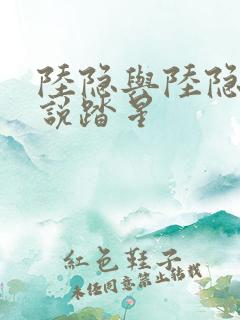 陸隐與陸隐
說踏星
紅色鞋子
未经同意禁止转载